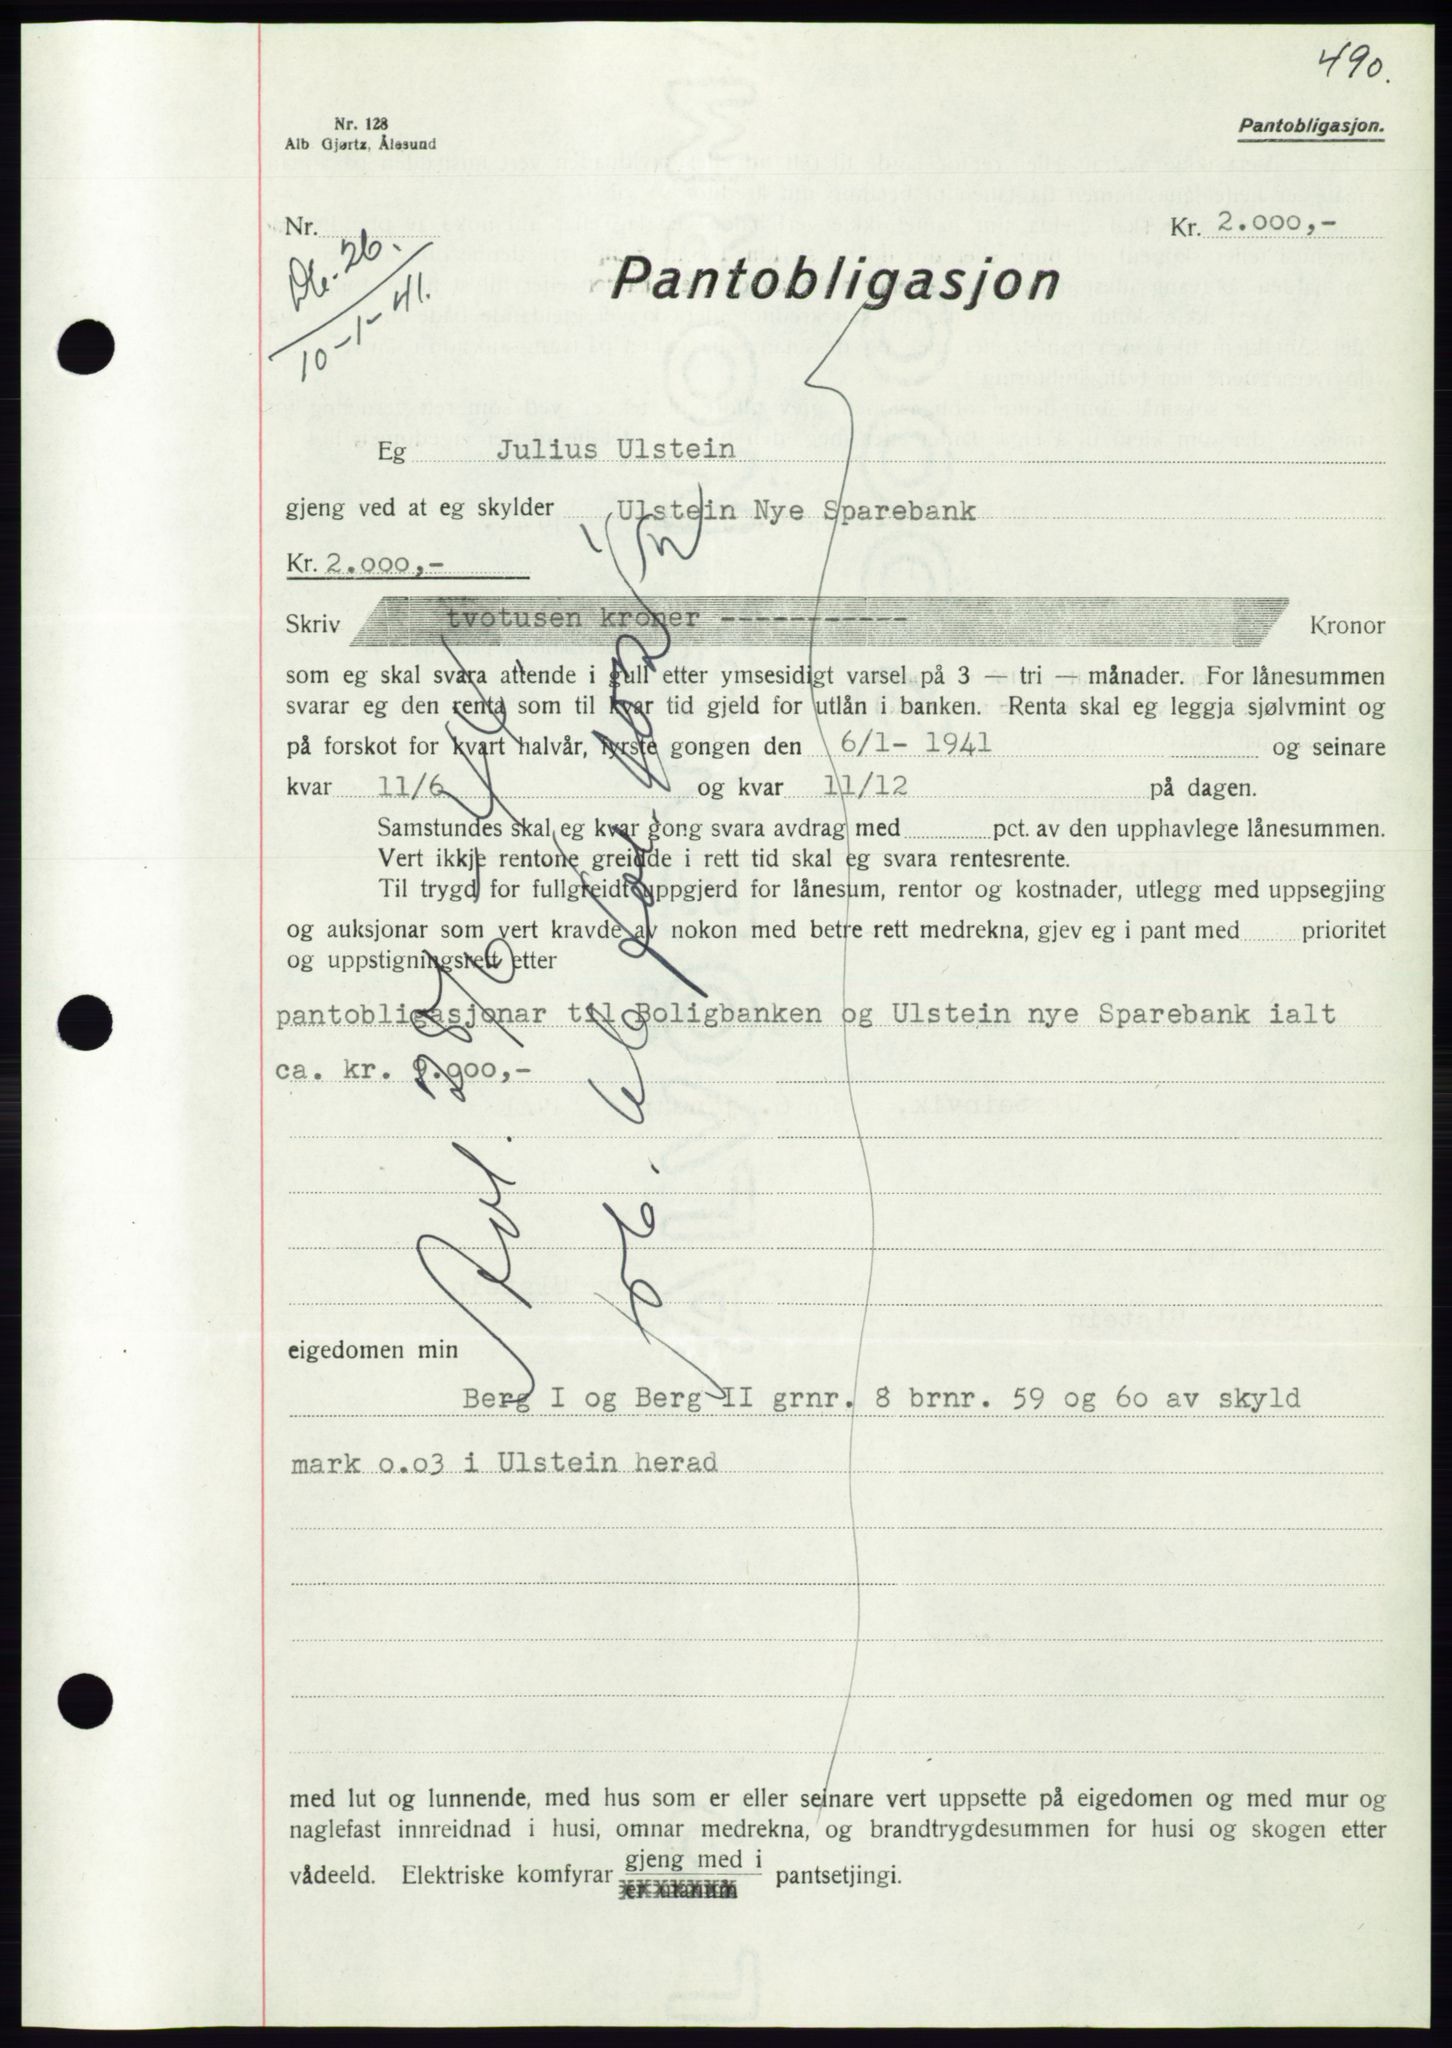 490.
Nr. 128
Alb Gjørtz, Ålesund
Pantobligasjon.
Nr.
Kr. 2.000,-
10-1-41.
Pantobligasjon
Eg Julius Ulstein
gjeng ved at eg skylder Ulstein Nye Sparebank
Kr. 2.000,-
Skriv tvotusen kroner ----------- Kronor
som eg skal svara attende i gull etter ymsesidigt varsel på 3 — tri — månader. For lånesummen
svarar eg den renta som til kvar tid gjeld for utlån i banken. Renta skal eg leggja sjølvmint og
på forskot for kvart halvår, fyrste gongen den 6/1- 1941 og seinare
kvar 11/6 og kvar 11/12 på dagen.
Samstundes skal eg kvar gong svara avdrag med pct. av den upphavlege lånesummen.
Vert ikkje rentone greidde i rett tid skal eg svara rentesrente.
Til trygd for fullgreidt uppgjerd for lånesum, rentor og kostnader, utlegg med uppsegjing
og auksjonar som vert kravde av nokon med betre rett medrekna, gjev eg i pant med prioritet
og uppstigningsrett etter
pantobligasjonar til Boligbanken og Ulstein nye Sparebank ialt
ca. kr. 9.000,-
eigedomen min
Berg I og Berg II grnr. 8 brnr. 59 og 60 av skyld
mark 0.03 i Ulstein herad
med lut og lunnende, med hus som er eller seinare vert uppsette på eigedomen og med mur og
naglefast innreidnad i husi, omnar medrekna, og brandtrygdesummen for husi og skogen etter
vådeeld. Elektriske komfyrar gjeng med i pantsetjingi.
er utanum